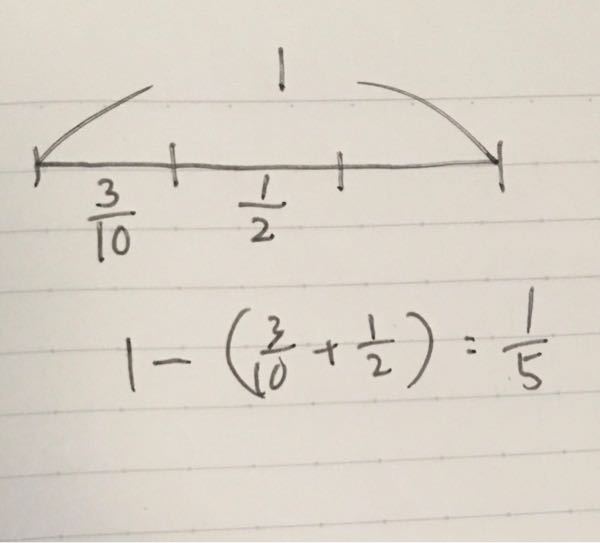 1
3/10 1/2
1 - (3/10 + 1/2) = 1/5